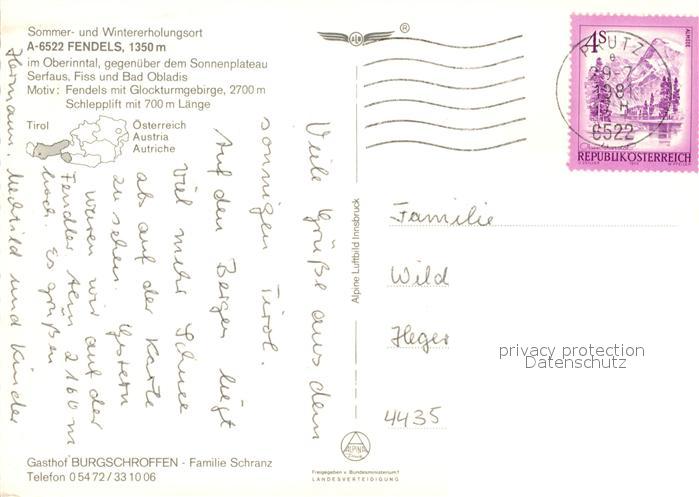 Sommer- und Wintererholungsort
A-6522 FENDELS, 1350 m
im Oberinntal, gegenüber dem Sonnenplateau
Serfaus, Fiss und Bad Obladis
Motiv: Fendels mit Glockturmgebirge, 2700 m
Schlepplift mit 700 m Länge
Tirol
Österreich
Austria
Autriche
Viele Grüße aus dem
sonnigen Tirol.
Auf den Bergen liegt
viel mehr Schnee
als auf der Karte
zu sehen. Gestern
waren wir auf der
Fendler Alm 2160 m
hoch. Es grüßen
Hermann, Mechtild und Kinder
Gasthof BURGSCHROFFEN - Familie Schranz
Telefon 0 54 72 / 33 10 06
Alpine Luftbild Innsbruck
ALPINE
Freigegeben v. Bundesministerium f.
LANDESVERTEIDIGUNG
®
4 S
ALMSEE
REPUBLIK ÖSTERREICH
PRUTZ
1981
6522
Familie
Wild
Heger
4435
privacy protection
Datenschutz